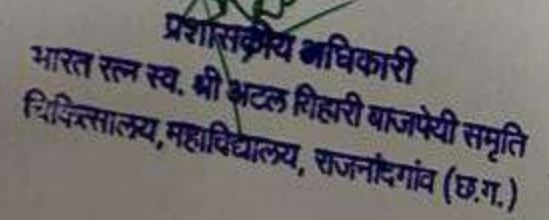 प्रशासकीय अधिकारी
भारत रत्न स्व. श्री अटल बिहारी बाजपेयी समृति
चिकित्सालय, महाविद्यालय, राजनांदगांव (छ.ग.)